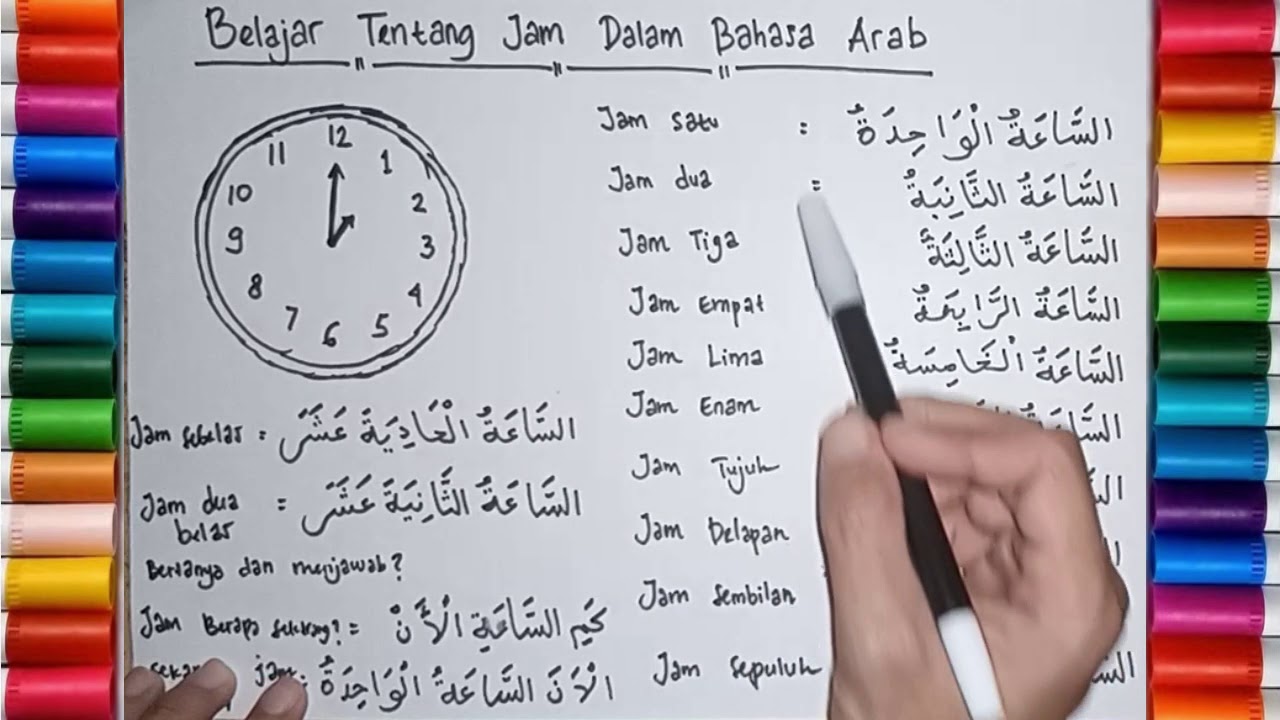 Belajar Tentang Jam Dalam Bahasa Arab
12
11 1
10 2
9 3
8 4
7 5
6
Jam satu : السَّاعَةُ الْوَاحِدَةُ
Jam dua : السَّاعَةُ الثَّانِيَةُ
Jam Tiga السَّاعَةُ الثَّالِثَةُ
Jam Empat السَّاعَةُ الرَّابِعَةُ
Jam Lima السَّاعَةُ الْخَامِسَةُ
Jam Enam
Jam Tujuh
Jam Delapan
Jam Sembilan
Jam Sepuluh
Jam sebelas = السَّاعَةُ الْحَادِيَةَ عَشَرَ
Jam dua = السَّاعَةُ الثَّانِيَةَ عَشَرَ
belas
Bertanya dan menjawab?
Jam Berapa sekarang? = كَمِ السَّاعَةِ الْأَنْ
jam: الْأَنَ السَّاعَةُ الْوَاحِدَةُ